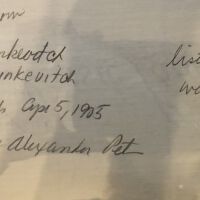 nkevitch
unkevitch
Apr 5, 1905
Alexander Pet
list
we